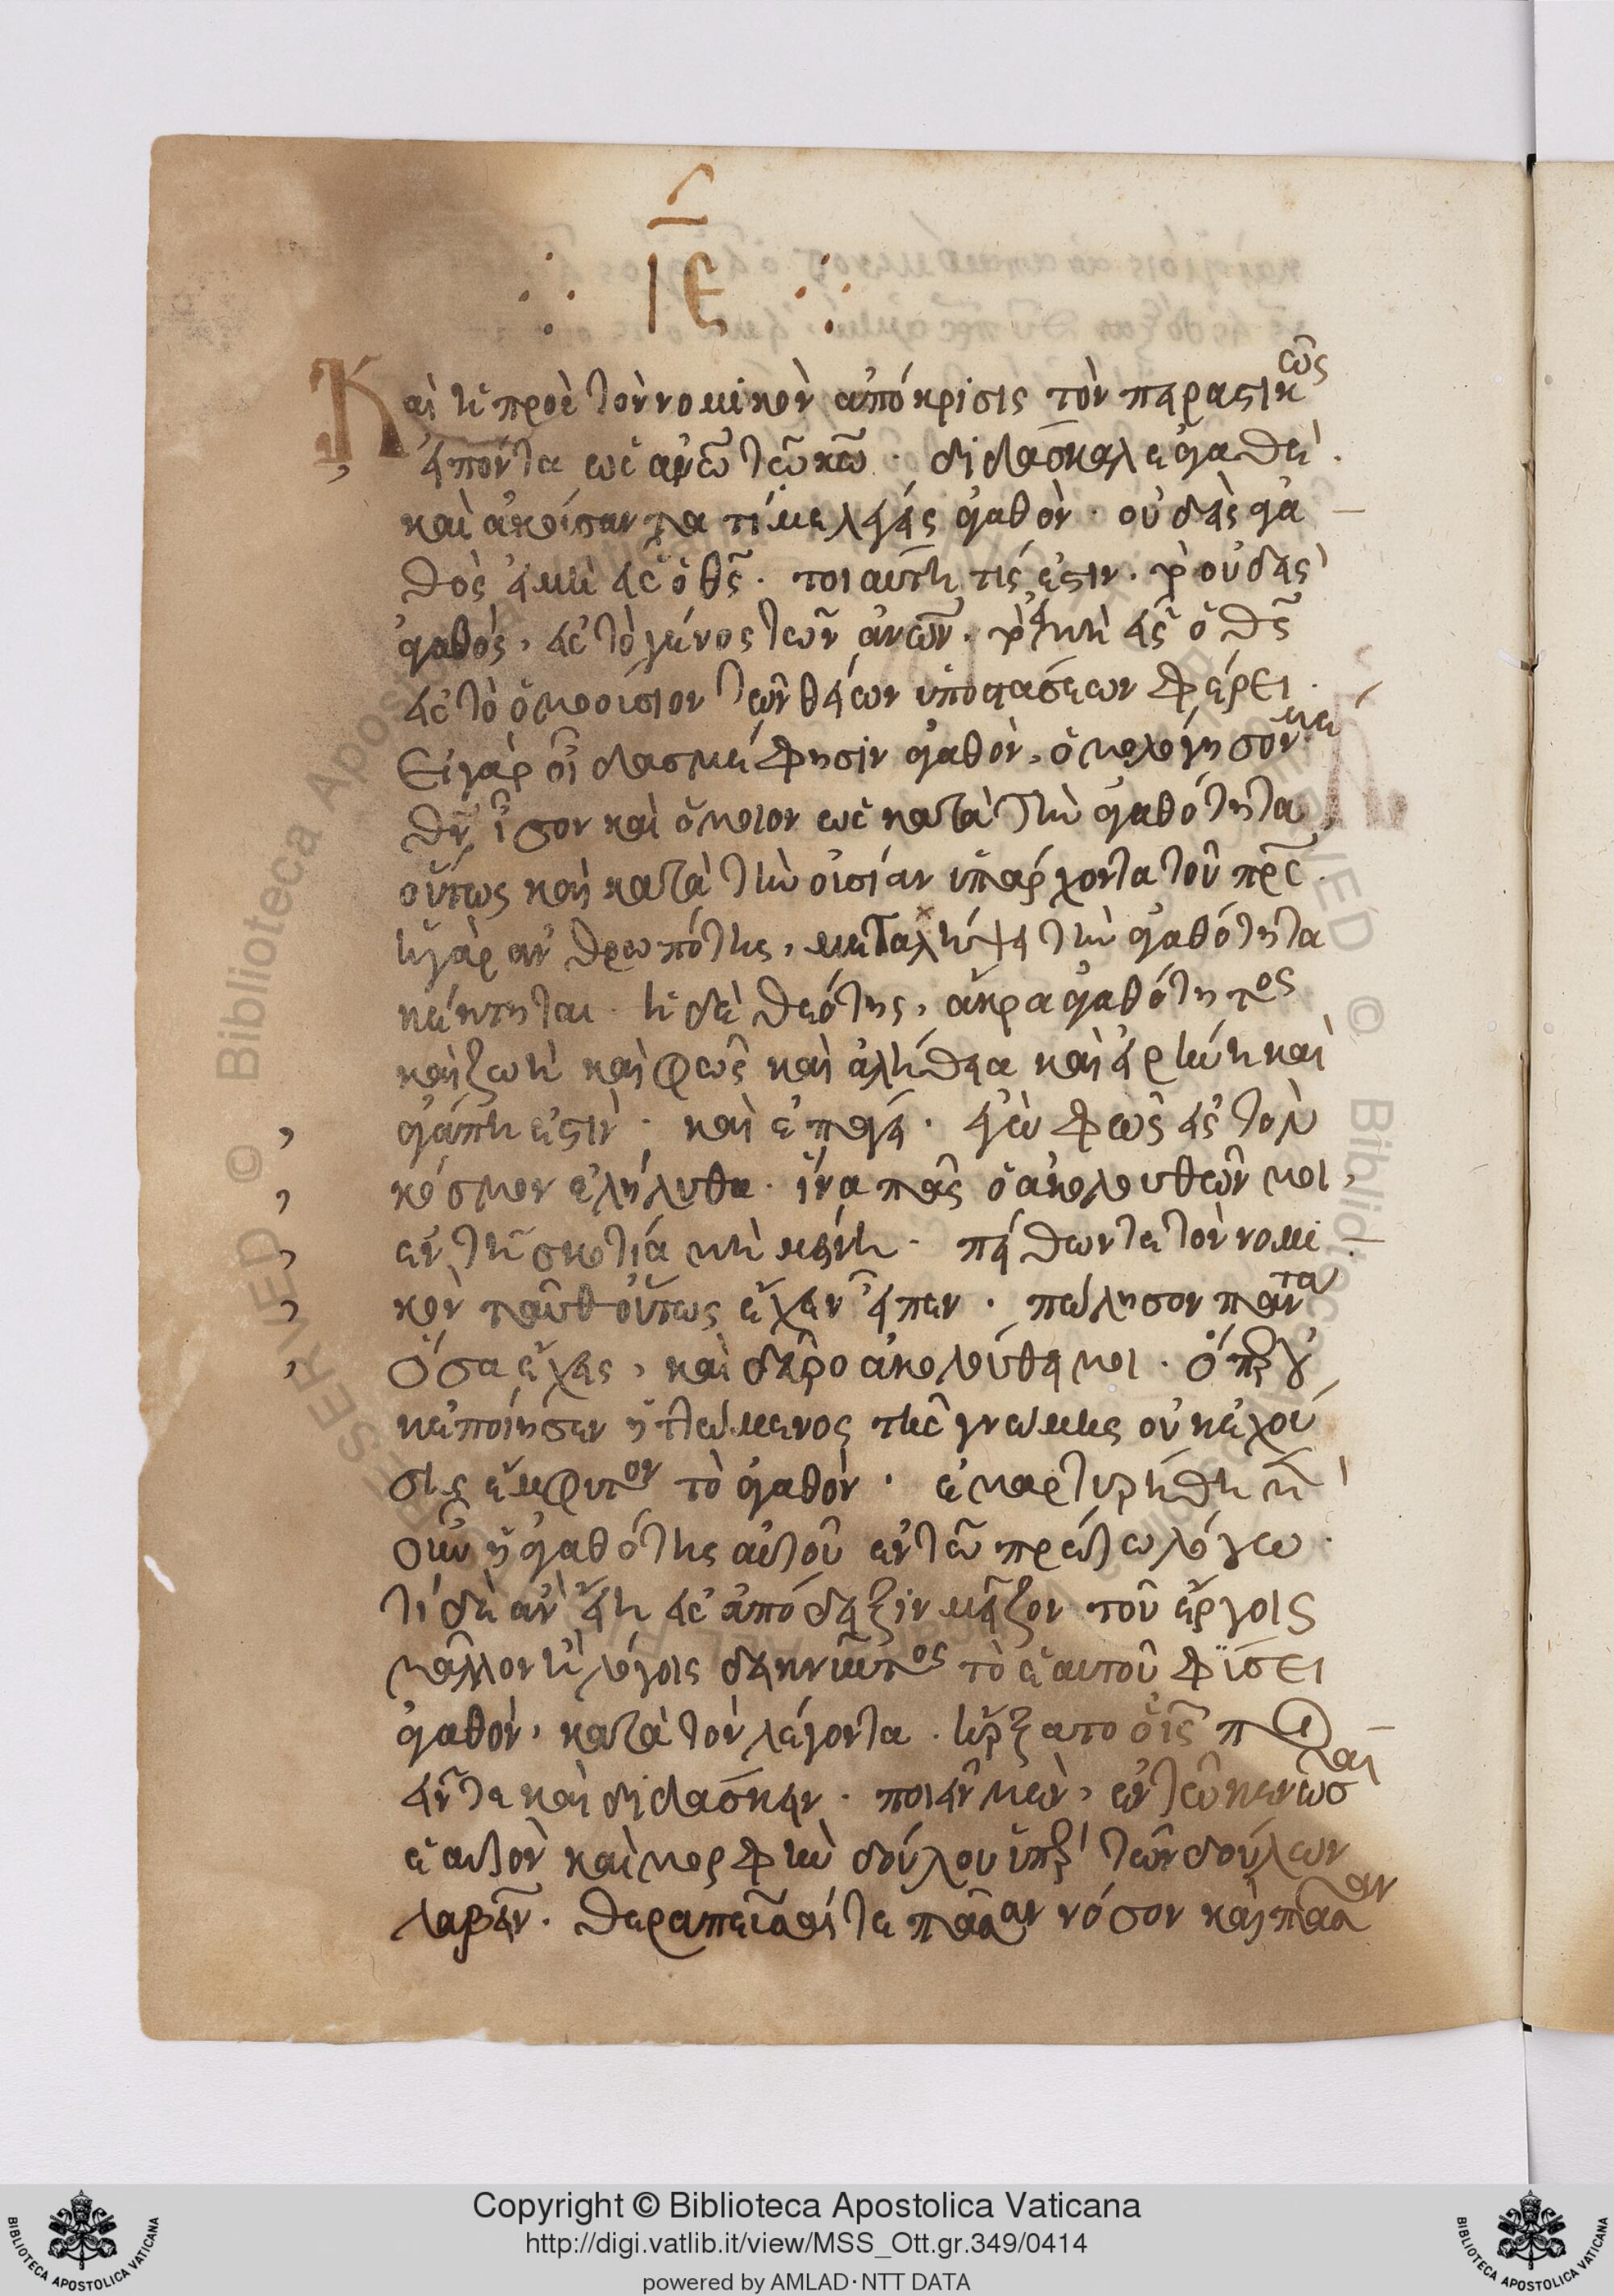 ιε
Καὶ ἡ πρὸς τὸν νομικὸν ἀπόκρισις τὸν πειραστικῶς
εἰπόντα ὡς ἀνω τῶ κω· διδάσκαλε ἀγαθέ·
καὶ ἀκούσαντα τί με λέγεις ἀγαθόν· οὐδεὶς ἀγα
θὸς εἰ μὴ εἷς ὁ θς· τοιαύτη τίς ἐστιν· τὸ οὐδεὶς
ἀγαθός, εἰς τὸ γένος τῶν ἀνων· τὸ εἰ μὴ εἷς ὁ θς
εἰς τὸ ὁμοούσιον τῶν θείων ὑποστάσεων φέρει·
Εἰ γὰρ οἶδας με φησὶν ἀγαθόν, ὁμολόγησόν με
θν ἴσον καὶ ὅμοιον ὡς κατὰ τὴν ἀγαθότητα,
οὕτως καὶ κατὰ τὴν οὐσίαν ὑπάρχοντα τοῦ πρς·
ἡ γὰρ ἀνθρωπότης, μεταλήψει τὴν ἀγαθότητα
κέκτηται· ἡ δὲ θεότης, ἄκρα ἀγαθότητος
καὶ ζωὴ καὶ φῶς καὶ ἀλήθεια καὶ εἰρήνη καὶ
ἀγάπη ἐστίν· καὶ ἐπάγει· ἐγὼ φῶς εἰς τὸν
κόσμον ἐλήλυθα· ἵνα πᾶς ὁ ἀκολουθῶν μοι,
ἐν τῆ σκοτία μὴ μείνη· πείθων τε τὸν νομι
κὸν ταῦθ οὕτως ἔχειν εἶπεν· πώλησον πάντα
ὅσα ἔχεις, καὶ δεῦρο ἀκολούθει μοι· ὅπερ
κ ἐποίησεν ἡττώμενος τῆς γνώμης οὐκ ἐχού
σης ἔμφυτον τὸ ἀγαθόν· ἐμαρτυρήθη μὲν
οὖν ἡ ἀγαθότης αὐτοῦ ἐν τῶ πρώτω λόγω·
τί δὲ ἂν εἴη εἰς ἀπόδειξιν μεῖζον τοῦ ἔργοις
μᾶλλον ἢ λόγοις δεικνύντος τὸ ἑαυτοῦ φύσει
ἀγαθόν, κατὰ τὸν λέγοντα· ἤρξατο ὁ ις ποι
εῖν τε καὶ διδάσκειν· ποιεῖν μὲν, ἐν τῶ κενῶσαι
ἑαυτὸν καὶ μορφὴν δούλου ὑπὲρ τῶν δούλων
λαβεῖν· θεραπεῦσαί τε πᾶσαν νόσον καὶ πᾶσαν
Copyright © Biblioteca Apostolica Vaticana
http://digi.vatlib.it/view/MSS_Ott.gr.349/0414
powered by AMLAD·NTT DATA
BIBLIOTECA APOSTOLICA VATICANA
BIBLIOTECA APOSTOLICA VATICANA